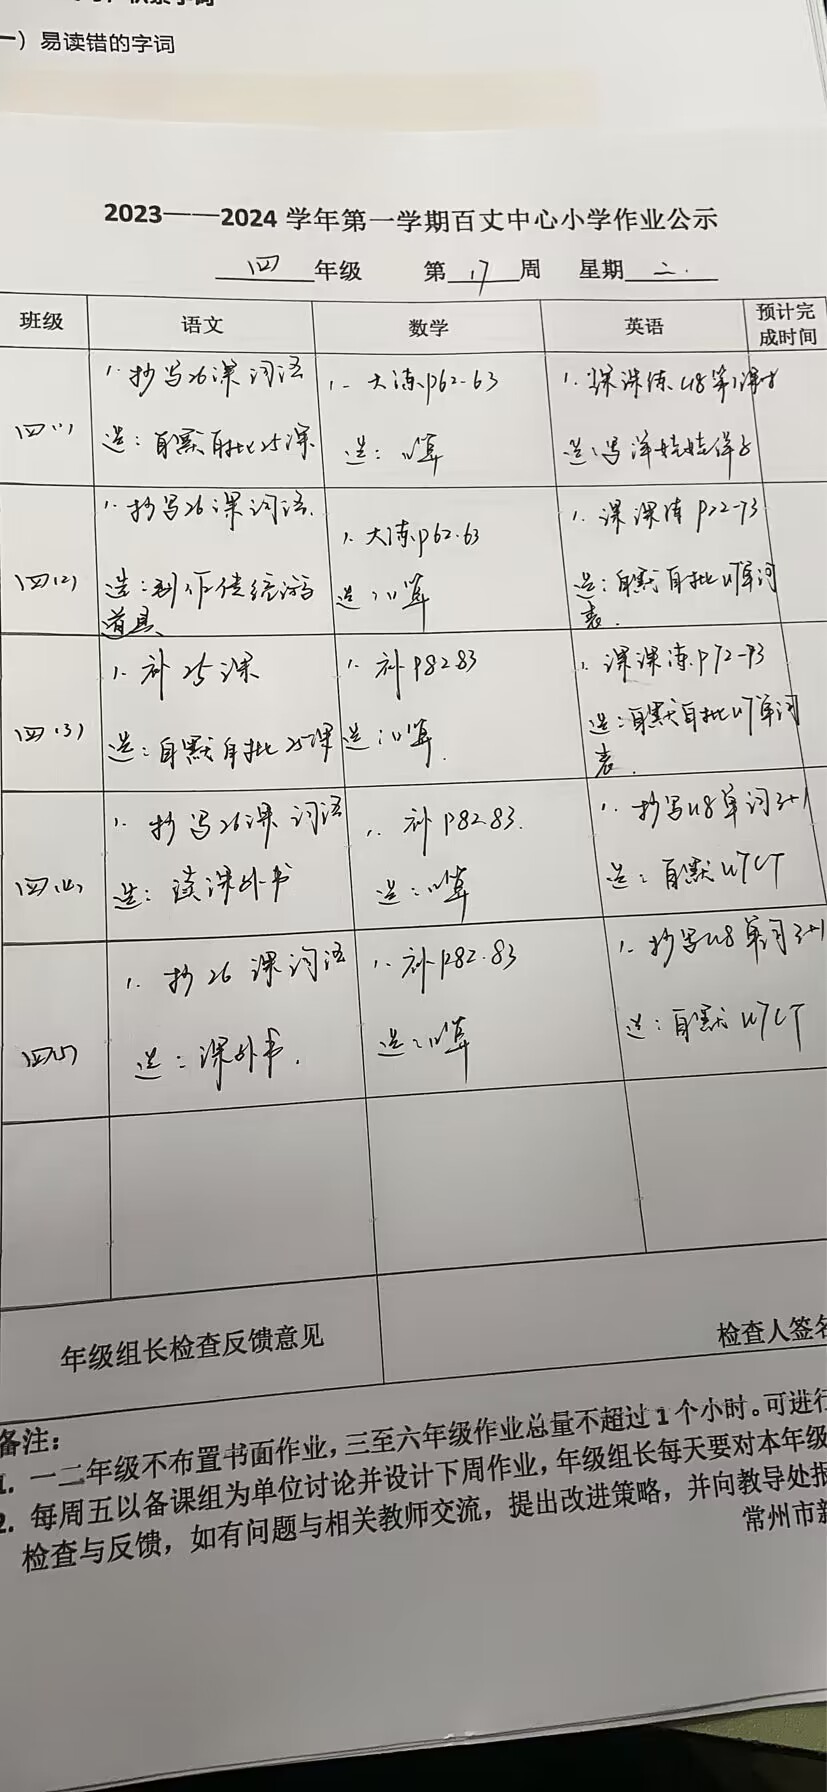 一）易读错的字词
2023——2024 学年第一学期百丈中心小学作业公示
四 年级 第 17 周 星期 二.
班级 语文 数学 英语 预计完成时间
四(1)
1. 抄写26课词语
选：自默自批25课
1. 大练p62-63
选：口算
1. 课课练U8第1课时
四(2)
1. 抄写26课词语.
选：制作传统游
道具
1. 大练p62.63
选：口算
1. 课课练
选：自默自批U7单词
表.
四(3)
1. 补25课
选：自默自批25课
1. 补P82 83
选：口算.
1. 课课练p72-73
选：自默自批U7单词
表.
四(4)
1. 抄写26课词语
选：读课外书
1. 补P82.83.
选：口算
1. 抄写U8单词3+1
选：自默U7CT
四(5)
1. 抄26课词语
选：课外书.
1. 补P82.83
选：口算
1. 抄写U8单词3+1
选：自默U7CT
年级组长检查反馈意见
检查人签名
备注：
1. 一二年级不布置书面作业，三至六年级作业总量不超过1个小时。可进行
2. 每周五以备课组为单位讨论并设计下周作业，年级组长每天要对本年级
检查与反馈，如有问题与相关教师交流，提出改进策略，并向教导处报
常州市新